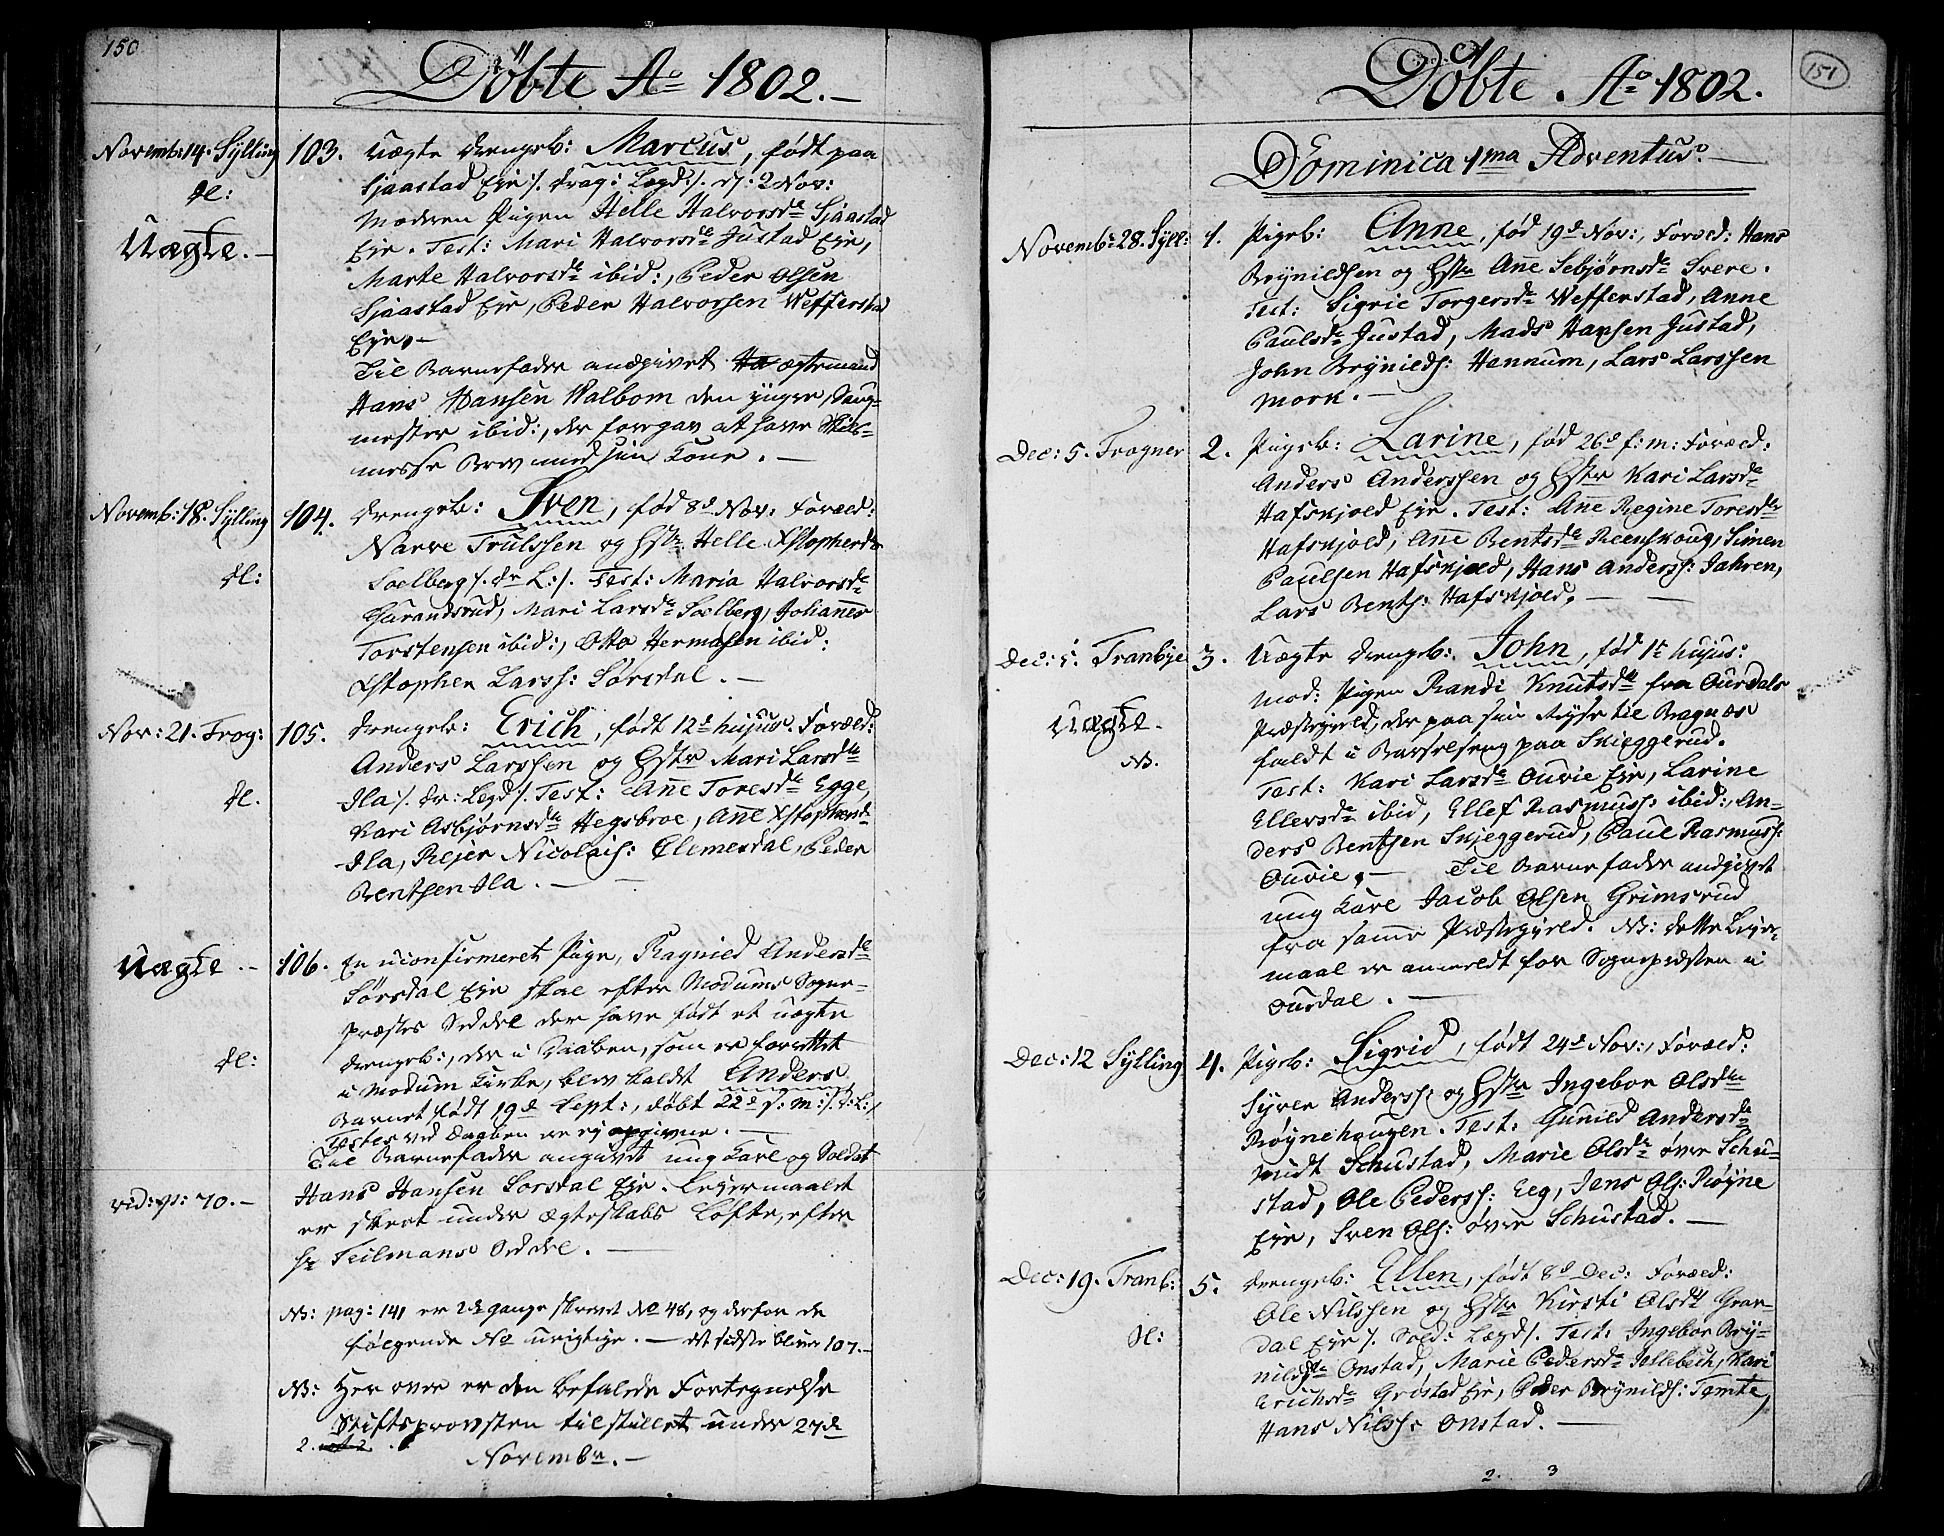 150
Döbte Ao 1802.
Novemb: 14. Sylling
dl:
Uægte.
103. Uægte Drengeb: Marcus, født paa
Sjaastad Eje /. Drag: Lægd: /. d: 2 Nov:
Moderen Pigen Helle Halvorsdr Sjaastad
Eje. Test: Mari Halvorsdr Justad Eje,
Marte Halvorsdr ibid:, Peder Olsen
Sjaastad Eje, Peder Halvorsen Wefferstad
Eje.
Til Barnefader andgivet Ha ægtemand
Hans Hansen Walbom den yngre, Saug-
mester ibid:, der foregav at have Skils-
messe Brev med sin Kone.
Novemb: 18. Sylling
dl:
104. Drengeb: Sven, fød 8d Nov: Foræld:
Narve Trulssen og Hstr Helle Xstophersdr
Soelberg /. Dr L: /. Test: Maria Halvorsdr
Garandsrud, Mari Larsdr Soelberg, Johannes
Torstensen ibid:, Otto Hermansen ibid:
Xstopher Larss: Sørsdal.
Nov: 21. Frog:
dl.
105. Drengeb: Erich, født 12d hujus. Foræld:
Anders Larssen og Hstr Mari Larsdr
Ila /. Dr: Lægd /. Test: Anne Toresdr Egge,
Kari Asbjørnsdr Hegsbroe, Anne Xstophersdr
Ila, Rejer Nicolais: Clemesdal, Peder
Bentsen Ila.
Uægte.
dl:
106. En uconfirmeret Pige, Ragnild Andersdr
Sørsdal Eje skal efter Modums Sogne-
præstes Seddel der have født et uægte
Drengeb:, der i Daaben, som er forrettet
i Modum Kirke, blev kaldet Anders
Barnet født 19d Sept:, døbt 22d s: m: /. D: L: /.
Testes ved Daaben er ej opgivne.
Til Barnefader angivet ung Karl og Soldat
Hans Hansen Sorsdal Eje. Lejermaalet
er skeet under Ægteskabs Løfte, efter
Hr Teilmans Seddel.
vid: p: 70.
NB: pag: 141 er 2de gange skrevet No 48, og derfor de
følgende No urigtige. — det sidste bliver 107.
NB: Her over er den befalede Fortegnelse
Stiftsprovsten tilstillet under 27d
Novembr.
151
Döbte. Ao 1802.
Dominica 1ma Adventus.
Novemb: 28. Syll:
1. Pigeb: Anne, fød 19d Nov:, Foræld: Hans
Brynildsen og Hstr Anne Sebjørnsdr Svere.
Test: Sigrie Torgersdr Wefferstad, Anne
Paulsdr Justad, Mads Hansen Justad,
John Brynilds: Hannum, Lars Larssen
Mork.
Dec: 5. Frogner
2. Pigeb: Larine, fød 26d f: m: Foræld:
Anders Anderssen og Hstr Kari Larsdr
Hafskjold Eje. Test: Anne Regine Toresdr
Hafskjold, Anne Bentsdr Reenskoug, Simen
Paulsen Hafskjold, Hans Anderss: Jahren,
Lars Bents: Hafskjold.
Dec: 5. Tranbye
Uægte.
NB.
3. Uægte Drengeb: John, fød 1te hujus:
Mod: Pigen Randi Knutsdr fra Ourdals
Præstegield, der paa sin Rejse til Bragnæs
faldt i Barselseng paa Skjeggerud.
Test: Kari Larsdr Ouvie Eje, Larine
Ellefsdr ibid, Ellef Rasmuss: ibid:, An-
ders Bentsen Skjeggerud, Paul Rasmuss:
Ouvie. — Til Barnefader andgivet
ung Karl Jacob Olsen Grimsrud
fra samme Præstegjeld. NB: dette Lejer-
maal er anmeldt for Sognepræsten i
Ourdal.
Dec: 12 Sylling
4. Pigeb: Sigrid, født 24d Nov:, Foræld:
Syver Anderss: og Hstr Ingebor Olsdr
Røynehougen. Test: Gunild Andersdr
midt Schustad, Marie Olsdr øvre Schu-
stad, Ole Peders: Eeg, Jens Ols: Røyne
Eje, Sven Ols: øvre Schustad.
Dec: 19. Tranb:
dl:
5. Drengeb: Ellen, født 8d Dec: Foræld:
Ole Nilssen og Hstr Kirsti Olsdr Gran-
dal Eje /. Sold: Lægd /. Test: Ingebor Bry-
nildsdr Onstad, Marie Pedersdr Jellebech, Kari
Erichsdr Grøstad Eje, Peder Brynilds: Tømte,
Hans Nilss: Onstad.
2. 3